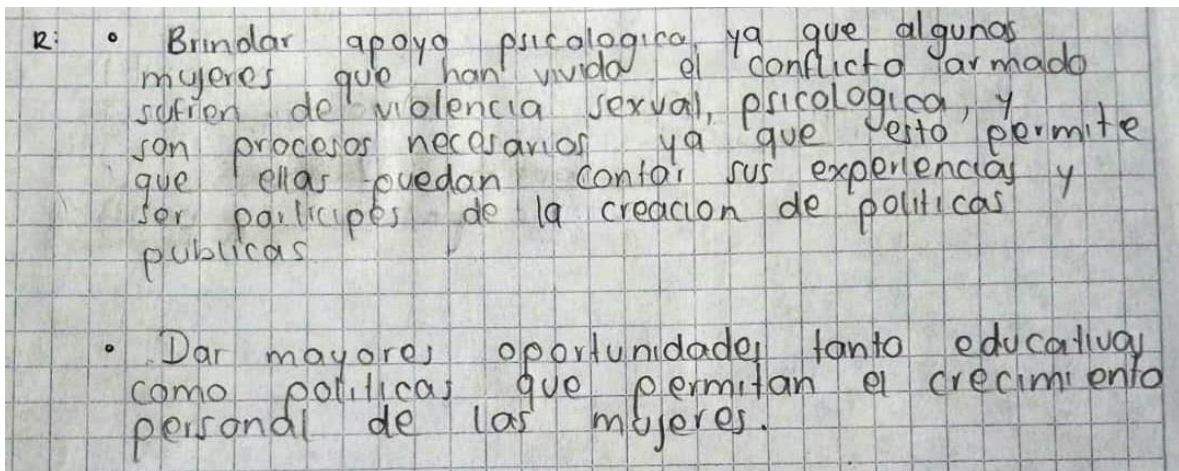 R: • Brindar apoyo psicologico, ya que algunas
mujeres que han vivido el conflicto armado
sufren de violencia sexual, psicologica, y
son procesos necesarios ya que esto permite
que ellas puedan contar sus experiencias y
ser participes de la creacion de politicas
publicas
• Dar mayores oportunidades tanto educativas
como politicas que permitan el crecimiento
personal de las mujeres.